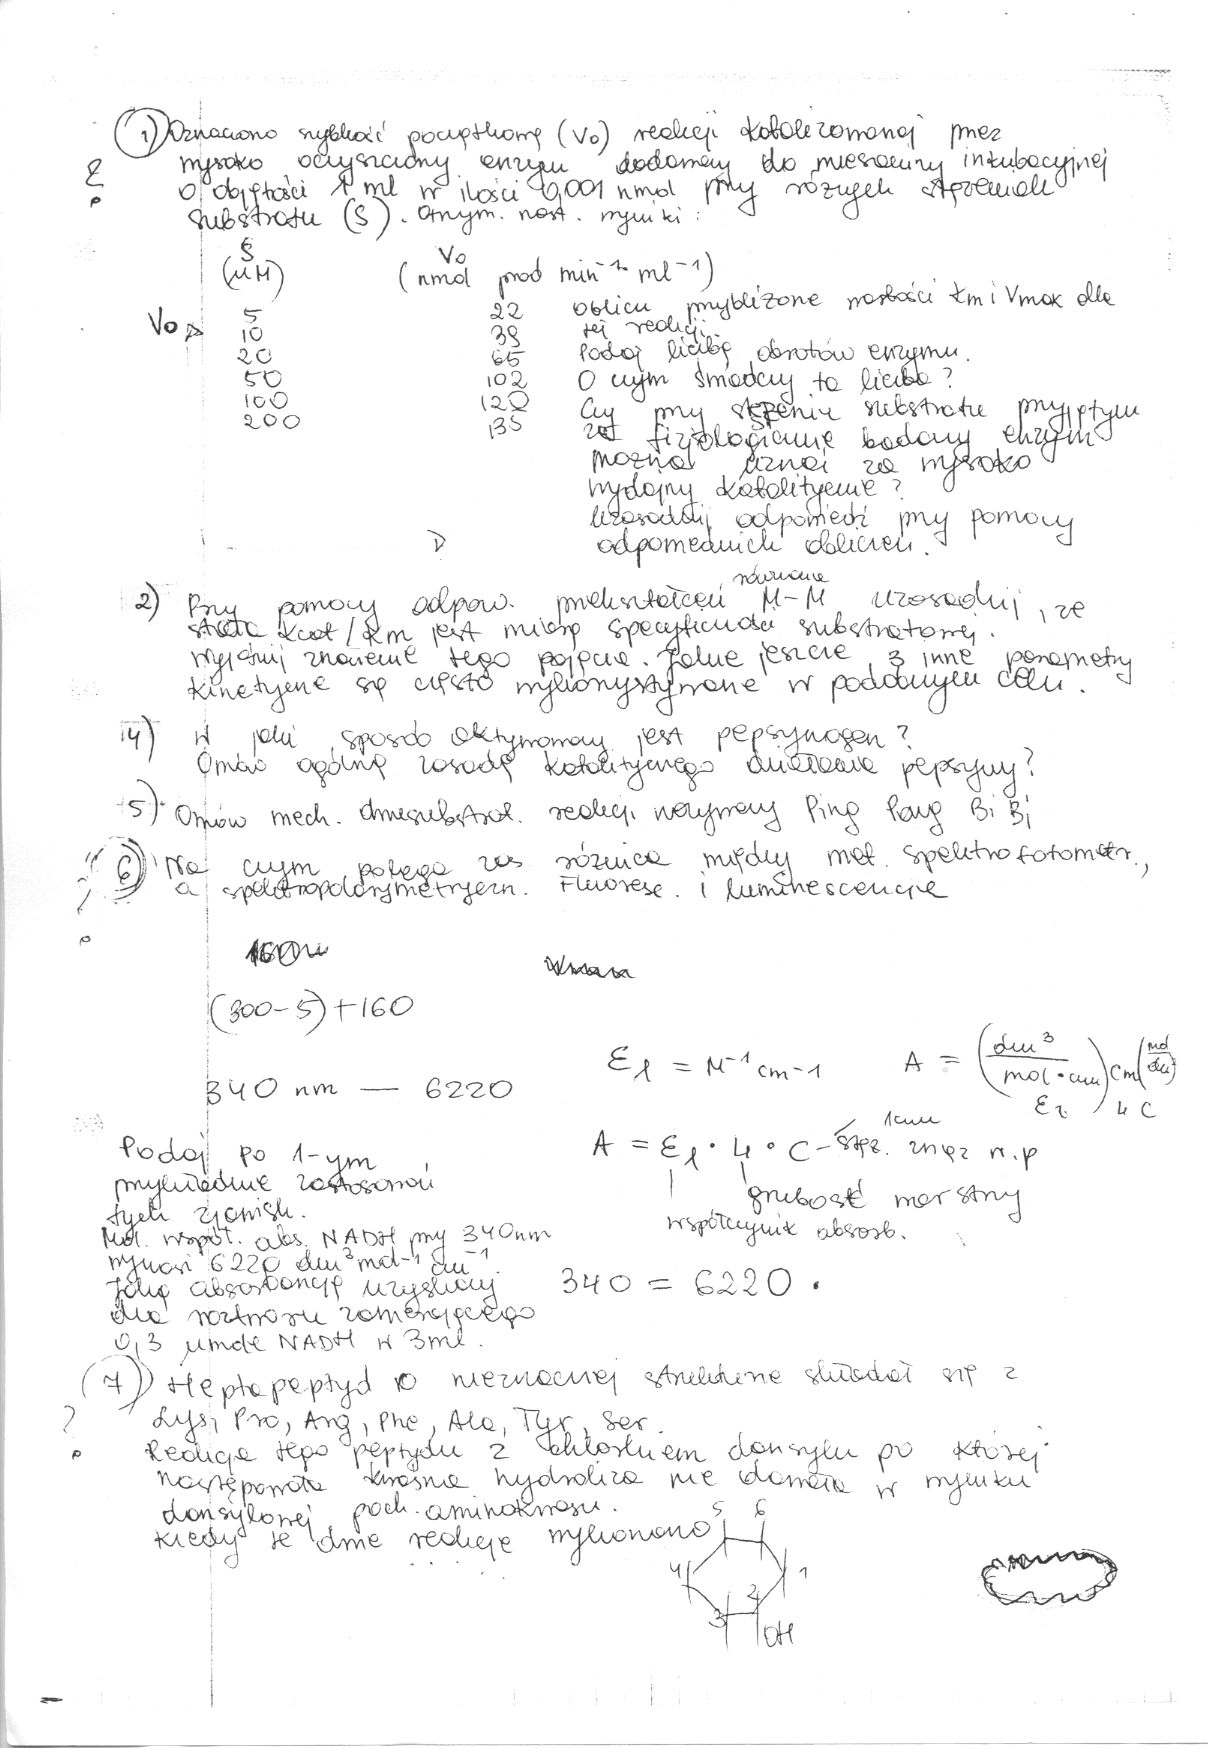 1) Oznaczono szybkość początkową (Vo) reakcji katalizowanej przez
wysoko oczyszczony enzym dodawany do mieszaniny inkubacyjnej
o objętości 1 ml w ilości 0,001 nmol przy różnych stężeniach
substratu (S). Otrzym. nast. wyniki:
S
(µM)
Vo
(nmol prod min⁻¹ ml⁻¹)
Vo
5 22
10 39
20 65
50 102
100 120
200 135
Oblicz przybliżone wartości Km i Vmax dla
tej reakcji.
Podaj liczbę obrotów enzymu.
O czym świadczy ta liczba?
Czy przy stężeniu substratu przyjętym
za fizjologiczne badany enzym
można uznać za wysoko
wydajny katalitycznie?
Uzasadnij odpowiedź przy pomocy
odpowiednich obliczeń.
2) Przy pomocy odpow. przekształceń równania M-M uzasadnij, że
stała kcat/Km jest miarą specyficzności substratowej.
Wyjaśnij znaczenie tego pojęcia. Jakie jeszcze 3 inne parametry
kinetyczne są często wykorzystywane w podobnym celu.
4) W jaki sposób aktywowany jest pepsynogen?
Omów ogólną zasadę katalitycznego działania pepsyny?
5) Omów mech. dwusubstrat. reakcji nazywany Ping Pong Bi Bi
6) Na czym polega zas różnica między met. spektrofotometr.,
a spektropolarymetryczn. Fluoresc. i luminescencję
(300-5)+160
340 nm — 6220
Podaj po 1-ym
przykładzie zastosowań
tych zjawisk.
Mol. współ. abs. NADH przy 340nm
wynosi 6220 dm³mol⁻¹cm⁻¹.
Jaką absorbancję uzyskamy
dla roztworu zawierającego
0,3 µmole NADH w 3ml.
εl = M⁻¹cm-1
A = (dm³/mol·cm) cm (mol/dm³)
A = εl · l · C - stęż. znaz n.p
1cm
grubość warstwy
współczynnik absorb.
340 = 6220 ·
7) Heptapeptyd o nieznanej strukturze składał się z
Lys, Pro, Arg, Phe, Ala, Tyr, Ser.
Reakcja tego peptydu z chlorkiem dansylu po której
następowała kwaśna hydroliza nie dawała w wyniku
dansylowej poch. aminokwasu.
Kiedy te dwie reakcje wykonano
5 6
4 1
3 2
OH